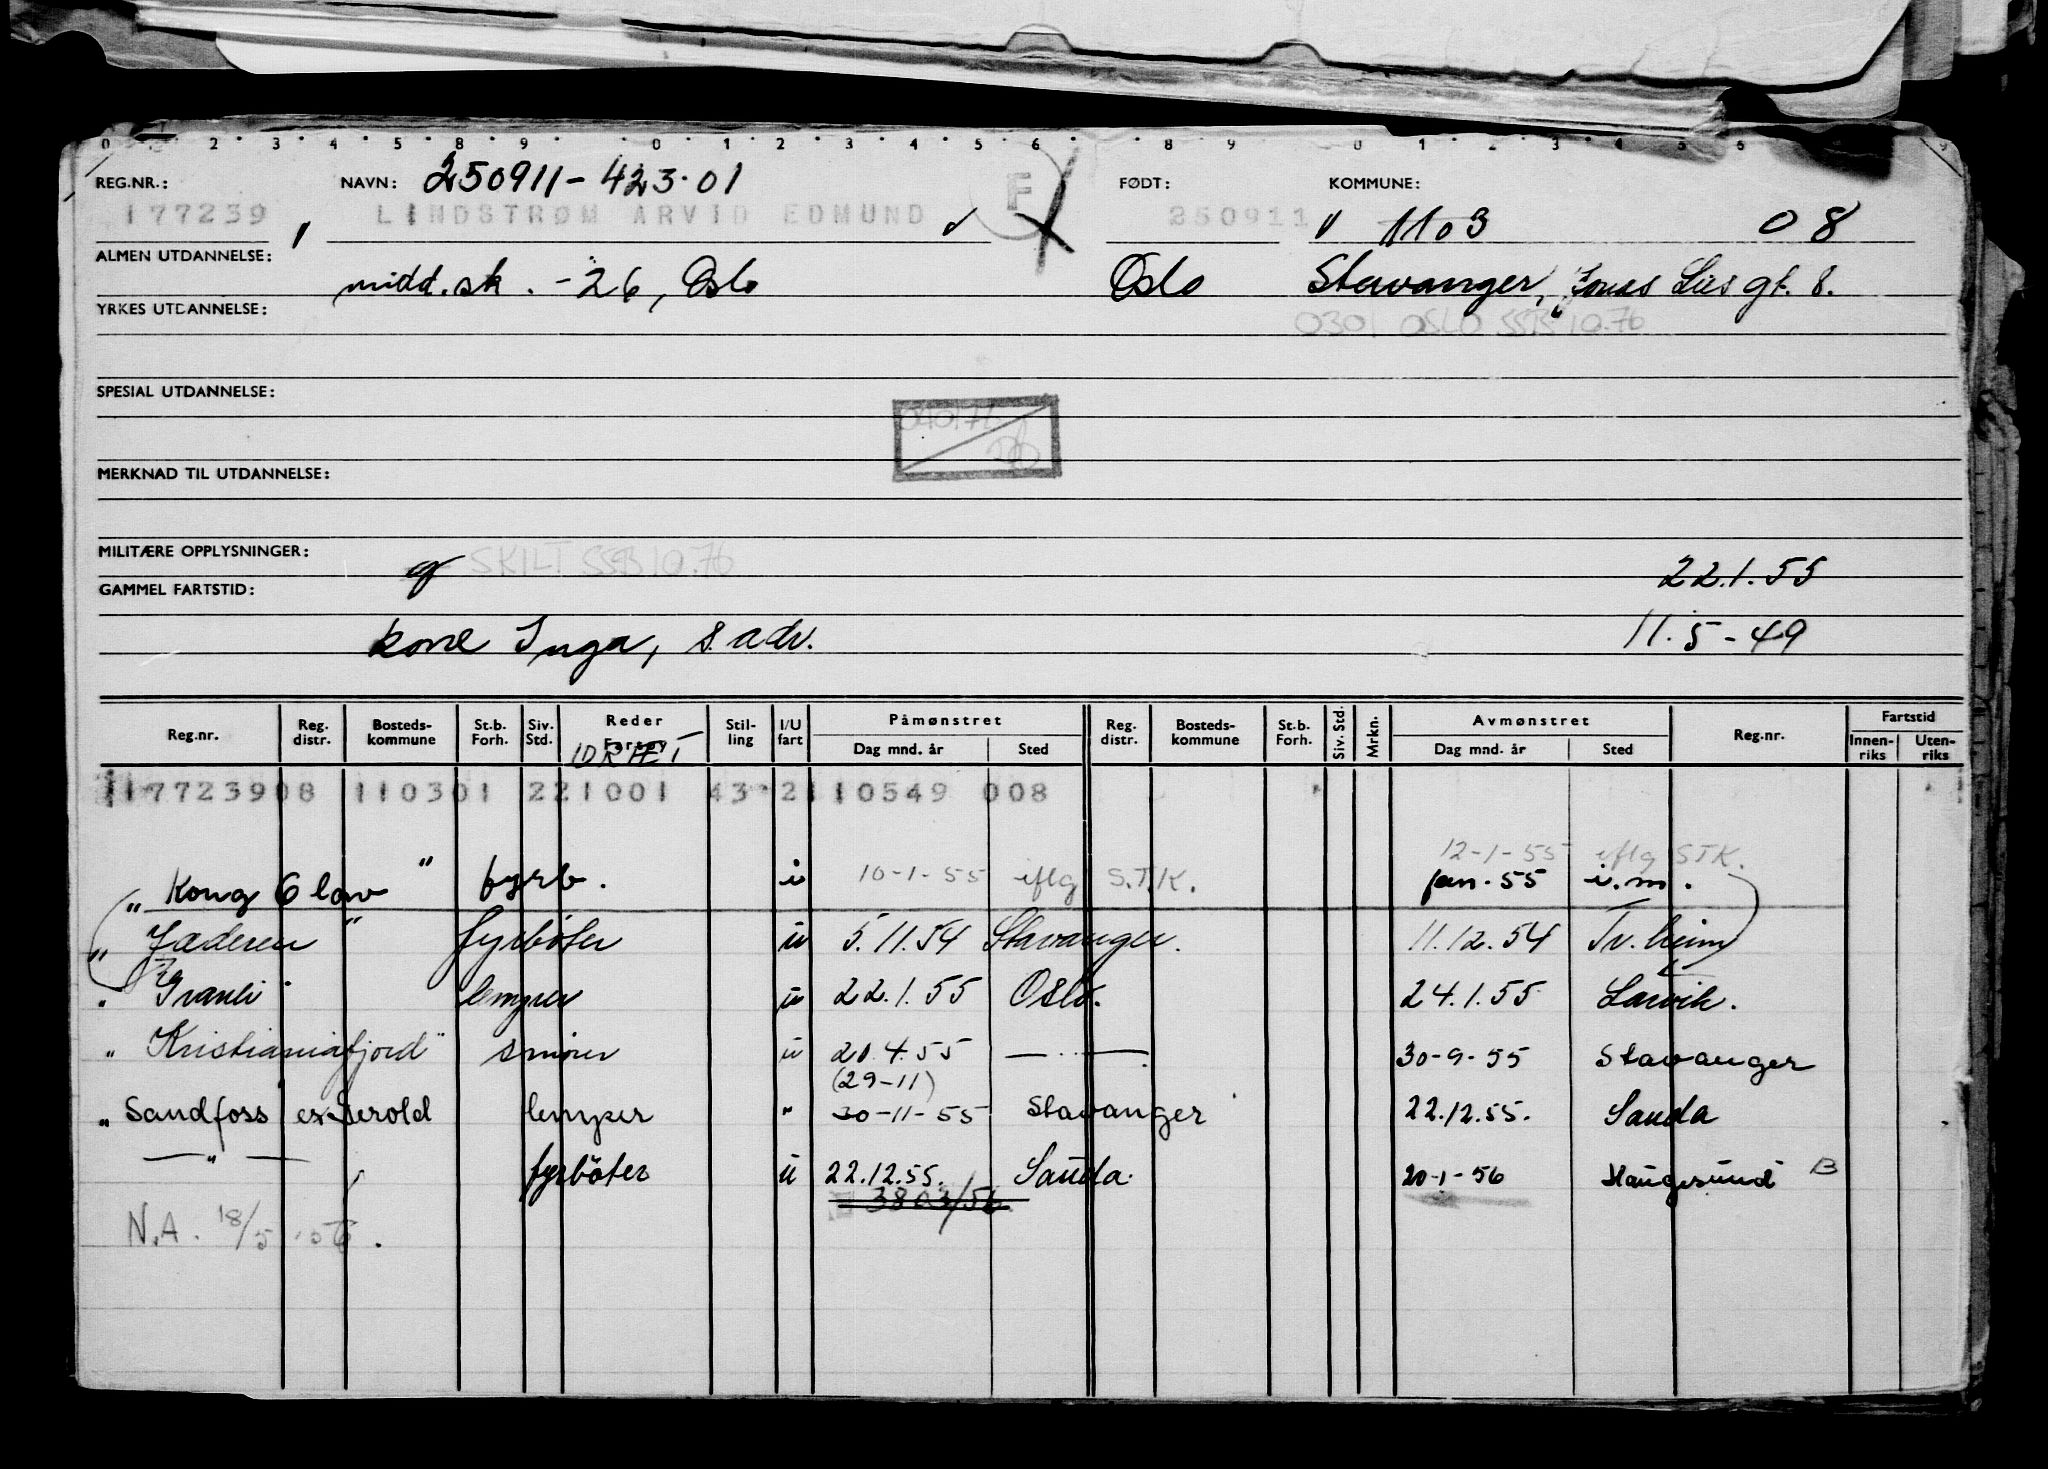 REG.NR.: NAVN: 250911-423.01 FØDT: KOMMUNE:
177239 LINDSTRØM ARVID EDMUND F 250911 1103 08
ALMEN UTDANNELSE: midd.sk. -26, Oslo Oslo Stavanger, Jonas Lies gt. 8.
YRKES UTDANNELSE: 0301 OSLO SSB 10.76
SPESIAL UTDANNELSE:
MERKNAD TIL UTDANNELSE:
MILITÆRE OPPLYSNINGER: SKILT SSB 10.76 22.1.55
GAMMEL FARTSTID:
kone Inga, s. adr. 11.5-49
Reg.nr. Reg. distr. Bosteds- kommune St.b. Forh. Siv. Std. Reder Fartøy Stil- ling I/U fart Påmønstret Dag mnd. år Sted Reg. distr. Bosteds- kommune St.b. Forh. Siv. Std. Mrkn. Avmønstret Dag mnd. år Sted Reg.nr. Fartstid Innen- riks Uten- riks
IDRÆT
17723908 110301 221001 43 2110549 008
12-1-55 iflg STK.
"Kong Olav" fyrb. i 10-1-55 iflg S.T.K. jan.55 i.m.
"Jæderen" fyrbøter u 5.11.54 Stavanger. 11.12.54 Tr.heim
"Granli lemper u 22.1.55 Oslo. 24.1.55 Larvik.
"Kristianiafjord" smører u 20.4.55 — " — 30-9-55 Stavanger
(29-11)
"Sandfoss ex Herold lemper " 30-11-55 Stavanger 22.12.55. Sauda
— " — fyrbøter u 22.12.55. Sauda 20-1-56 Haugesund B
3803/56
N.A. 18/5 56.